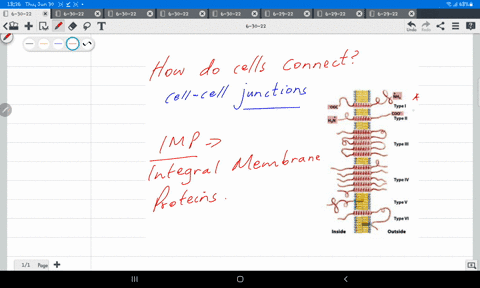 18:56 Thu, Jun 30
68%
6-30-22 6-30-22 6-30-22 6-30-22 6-30-22 6-29-22 6-29-22 6-29-22
6-30-22
Undo Redo
How do cells connect?
cell-cell junctions
IMP ⇒
Integral Membrane
Proteins.
Type I
COO⁻
Type II
H₃N
Type III
Type IV
Type V
Type VI
Inside Outside
1/1 Page